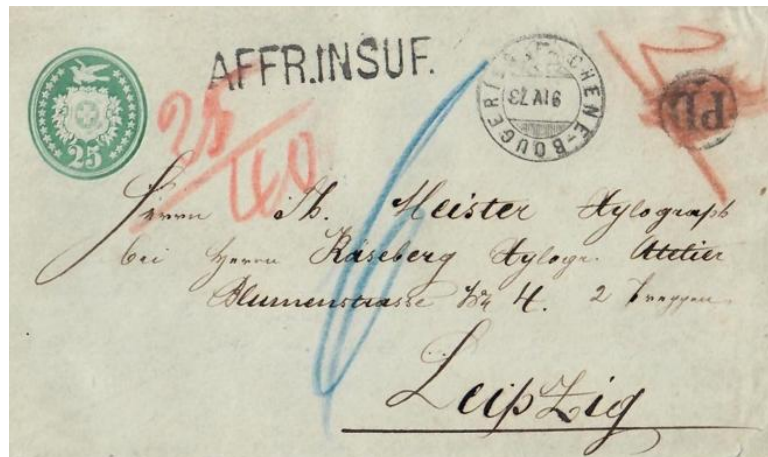 AFFR.INSUF.
CHENE-BOUGERI
9 IV 73
PD
25
25
40
Herrn Th. Meister Xylograph
bei Herrn Käseberg Xylogr. Atelier
Blumenstrasse No 4. 2 Treppen
Leipzig